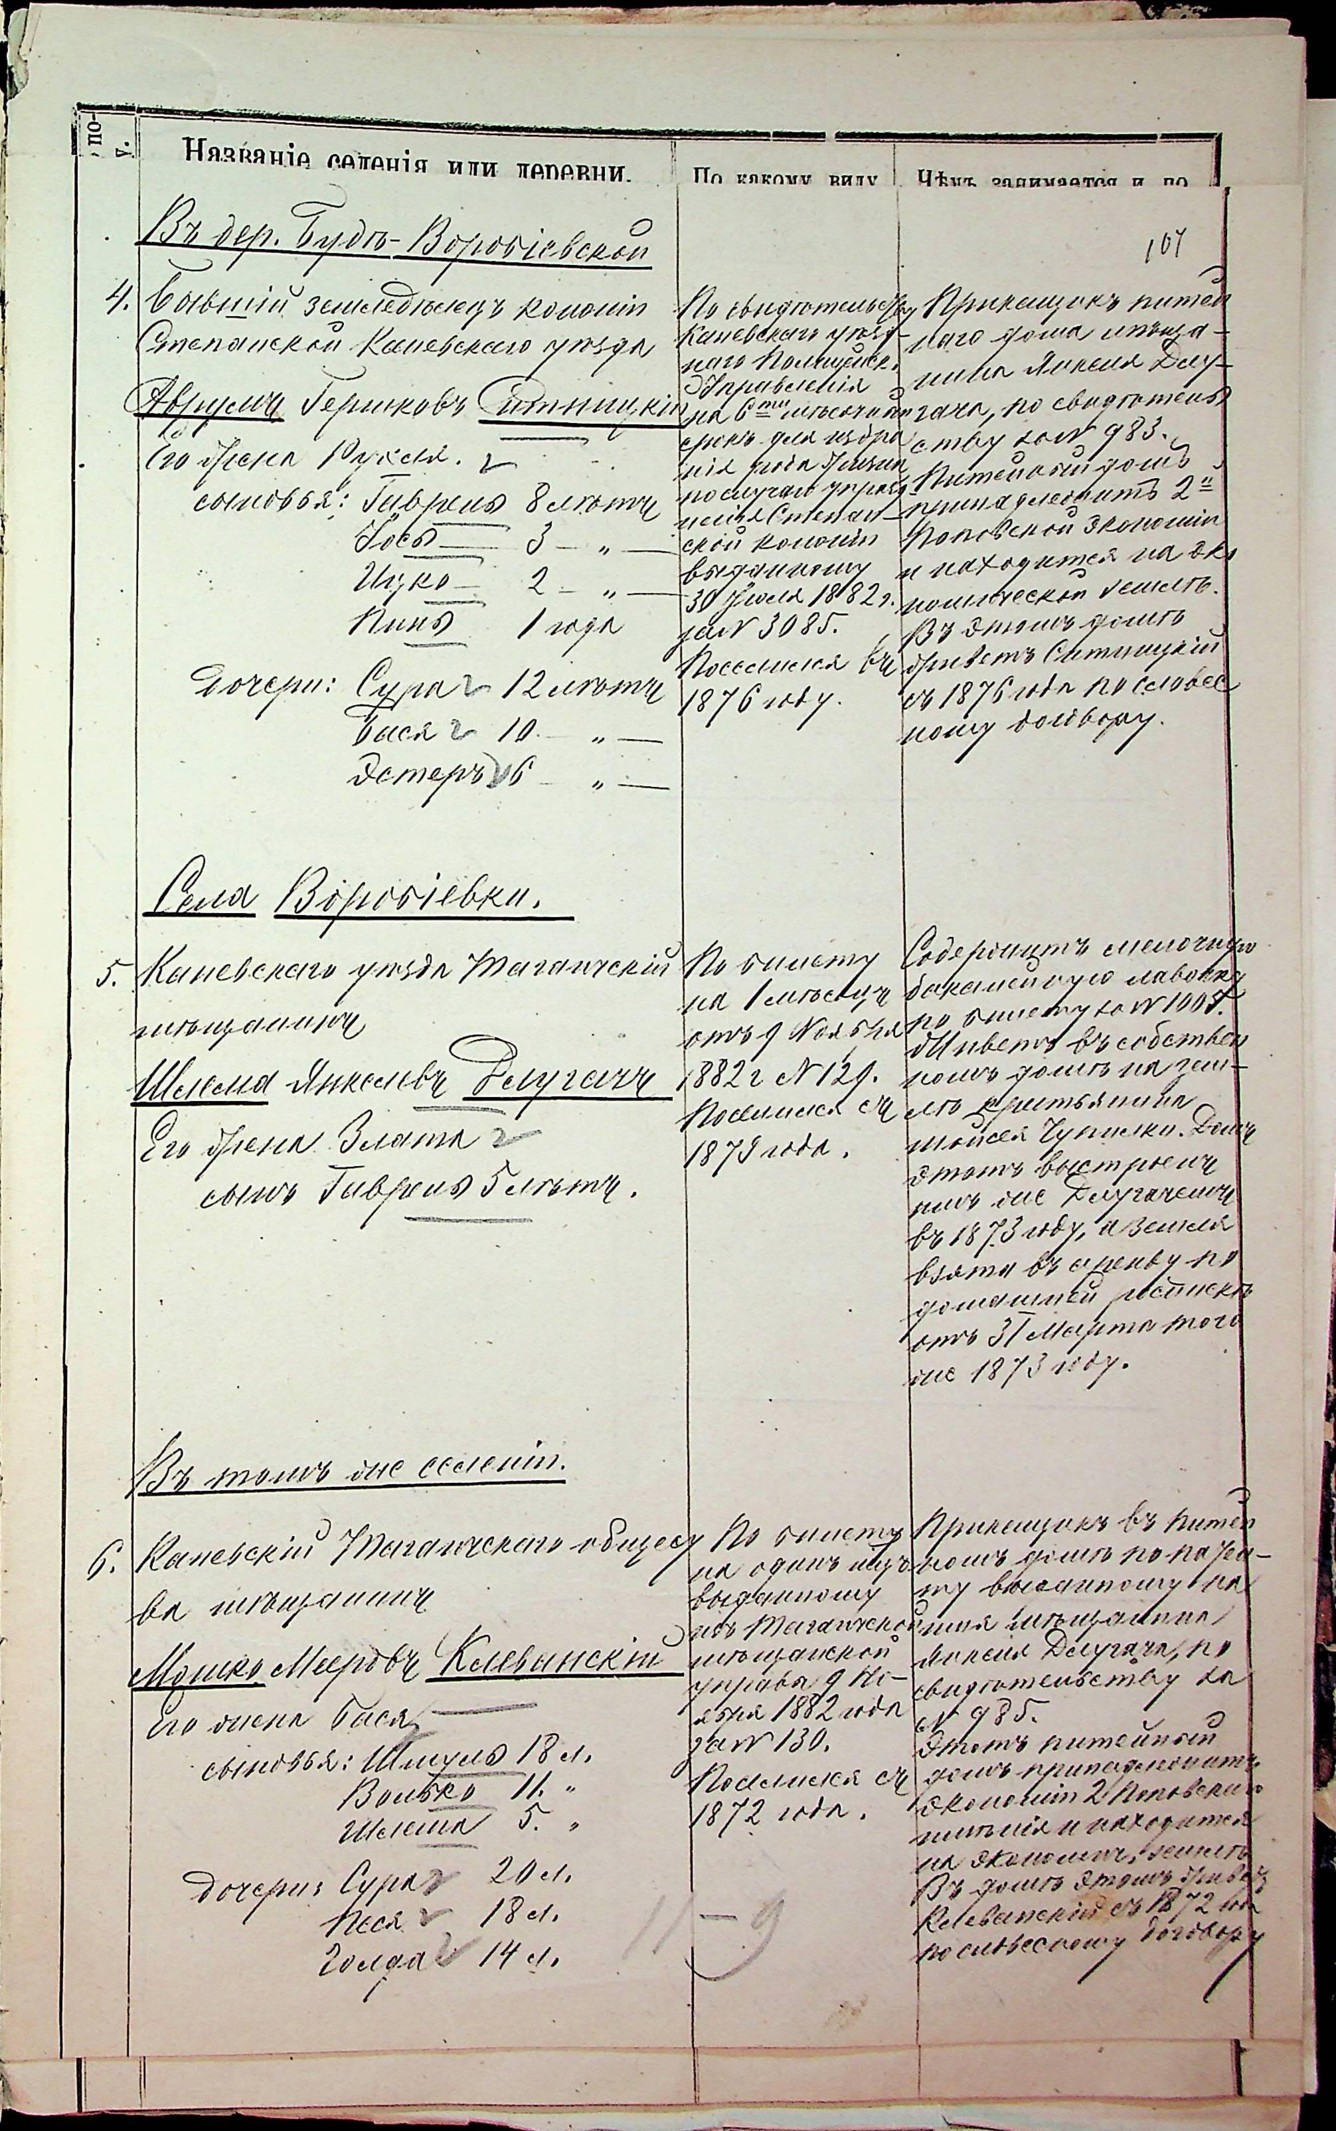 по-
у.
Названіе селенія или деревни.
По какому виду
Чѣмъ занимается и по
107
Въ дер. Будѣ-Воробіевской
4. Бывшій земледѣлецъ колоніи
Степанской Каневскаго уѣзда
Аврумъ Гершковъ Ситницкій
Его жена Рухля.
сыновья: Гаврель 8 лѣтъ
Іось 3 — „ —
Ицко 2 — „ —
Пинь 1 года
дочери: Сура 12 лѣтъ
Бася 10 — „ —
Эстеръ 6 — „ —
По свидѣтельству
Каневскаго уѣзд-
наго Полицейск.
Управленія
на 6ти мѣсячный
срокъ для избра
нія рода жизни
по случаю упразд-
ненія Степан-
ской колоніи
выданному
30 Іюля 1882 г.
за № 3085.
Поселился въ
1876 году.
Прикащикъ питей
наго дома мѣща-
нина Янкеля Длу-
гача, по свидѣтель
ству за № 983.
Питейный домъ
принадлежитъ 2й
Поповской Экономіи
и находится на эко
номической землѣ.
Въ этомъ домѣ
живетъ Ситницкій
съ 1876 года по словес
ному договору.
Села Воробіевки.
5. Каневскаго уѣзда Таганчскій
мѣщанинъ
Шлема Янкелевъ Длугачъ
Его жена Злата
сынъ Гаврель 5 лѣтъ.
По билету
на 1 мѣсяцъ
отъ 9 Ноября
1882 г № 129.
Поселился съ
1873 года.
Содержитъ мелочную
бакалейную лавочку
по билету за № 1005.
Живетъ въ собствен
номъ домѣ на зем-
лѣ крестьянина
Мойсея Чупилки. Домъ
этотъ выстроенъ
имъ же Длугачемъ
въ 1873 году, а земля
взята въ аренду по
домашней роспискѣ
отъ 31 Марта того
же 1873 году.
Въ томъ же селеніи.
6. Каневскій Таганчскаго общест
ва мѣщанинъ
Мошко Мееровъ Клеванскій
Его жена Бася
сыновья: Шмуль 18 л.
Волько 11. „
Шлема 5. „
дочери: Сура 20 л.
Песя 18 л.
Голда 14 л.
По билету
на одинъ мѣс.
выданному
изъ Таганчской
мѣщанской
управы 9 Но-
ября 1882 года
за № 130.
Поселился съ
1872 года.
Прикащикъ въ питей
номъ домѣ по патен-
ту выданному на
имя мѣщанина
Янкеля Длугача, по
свидѣтельству за
№ 985.
Этотъ питейный
домъ принадлежитъ
экономіи 2 Поповскаго
имѣнія и находится
на экономич. землѣ
Въ домѣ этомъ живетъ
Клеванскій съ 1872 года
по словесному договору
11 – 9